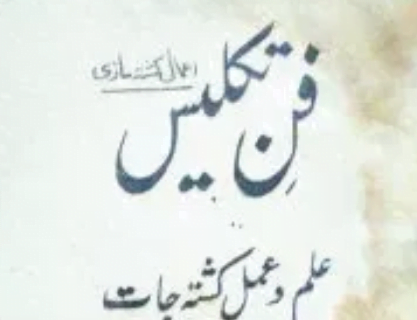 اعمال کشتہ سازی
فنِ تکلیس
علم و عمل کشتہ جات